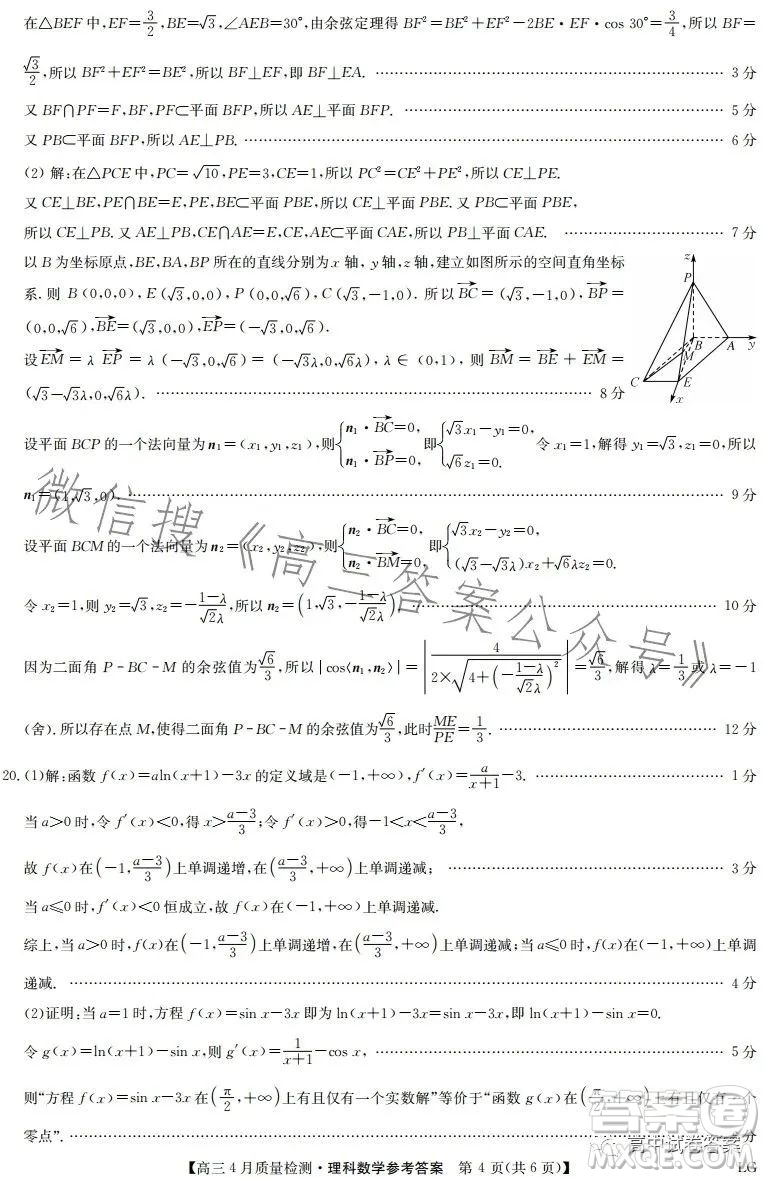 在△BEF 中,EF=3/2,BE=√3,∠AEB=30°,由余弦定理得 BF²=BE²+EF²-2BE·EF·cos 30°=3/4,所以 BF=
√3/2,所以 BF²+EF²=BE²,所以 BF⊥EF,即 BF⊥EA. …… 3 分
又 BF∩PF=F,BF,PF⊂平面 BFP,所以 AE⊥平面 BFP. …… 5 分
又 PB⊂平面 BFP,所以 AE⊥PB. …… 6 分
(2) 解:在△PCE 中,PC=√10,PE=3,CE=1,所以 PC²=CE²+PE²,所以 CE⊥PE.
又 CE⊥BE,PE∩BE=E,PE,BE⊂平面 PBE,所以 CE⊥平面 PBE. 又 PB⊂平面 PBE,
所以 CE⊥PB. 又 AE⊥PB,CE∩AE=E,CE,AE⊂平面 CAE,所以 PB⊥平面 CAE. …… 7 分
以 B 为坐标原点,BE,BA,BP 所在的直线分别为 x 轴, y 轴,z 轴,建立如图所示的空间直角坐标
系. 则 B(0,0,0),E(√3,0,0),P(0,0,√6),C(√3,-1,0). 所以 BC→=(√3,-1,0),BP→=
(0,0,√6),BE→=(√3,0,0),EP→=(-√3,0,√6).
设EM→=λ EP→=λ(-√3,0,√6)=(-√3λ,0,√6λ),λ∈(0,1), 则 BM→=BE→+EM→=
(√3-√3λ,0,√6λ). …… 8 分
z
P
B
A
y
M
C
E
x
设平面 BCP 的一个法向量为 n₁=(x₁,y₁,z₁),则{n₁·BC→=0, n₁·BP→=0,即{√3x₁-y₁=0, √6z₁=0. 令 x₁=1,解得 y₁=√3,z₁=0,所以
n₁=(1,√3,0). …… 9 分
设平面 BCM 的一个法向量为 n₂=(x₂,y₂,z₂),则{n₂·BC→=0, n₂·BM→=0,即{√3x₂-y₂=0, (√3-√3λ)x₂+√6λz₂=0.
令 x₂=1,则 y₂=√3,z₂=-(1-λ)/(√2λ),所以 n₂=(1,√3,-(1-λ)/(√2λ)), …… 10 分
因为二面角 P-BC-M 的余弦值为√6/3,所以|cos⟨n₁,n₂⟩|=|4/(2×√(4+(-(1-λ)/(√2λ))²))|=√6/3;解得 λ=1/3或 λ=-1
(舍). 所以存在点 M,使得二面角 P-BC-M 的余弦值为√6/3,此时ME/PE=1/3. …… 12 分
20. (1)解:函数 f(x)=aln(x+1)-3x 的定义域是(-1,+∞),f′(x)=a/(x+1)-3. …… 1 分
当 a>0 时,令 f′(x)<0,得 x>(a-3)/3;令 f′(x)>0,得-1<x<(a-3)/3,
故 f(x)在(-1,(a-3)/3)上单调递增,在((a-3)/3,+∞)上单调递减; …… 3 分
当 a≤0 时,f′(x)<0 恒成立,故 f(x)在(-1,+∞)上单调递减.
综上,当 a>0 时,f(x)在(-1,(a-3)/3)上单调递增,在((a-3)/3,+∞)上单调递减;当 a≤0 时,f(x)在(-1,+∞)上单调
递减. …… 4 分
(2)证明:当 a=1 时,方程 f(x)=sin x-3x 即为 ln(x+1)-3x=sin x-3x,即 ln(x+1)-sin x=0.
令 g(x)=ln(x+1)-sin x,则 g′(x)=1/(x+1)-cos x, …… 5 分
则“方程 f(x)=sin x-3x 在(π/2,+∞)上有且仅有一个实数解”等价于“函数 g(x)在(π/2,+∞)上有且仅有一个
零点”. ……
【高三 4 月质量检测·理科数学参考答案 第 4 页(共 6 页)】 LG
微信搜《高三答案公众号》
答案圈
高中试卷答案